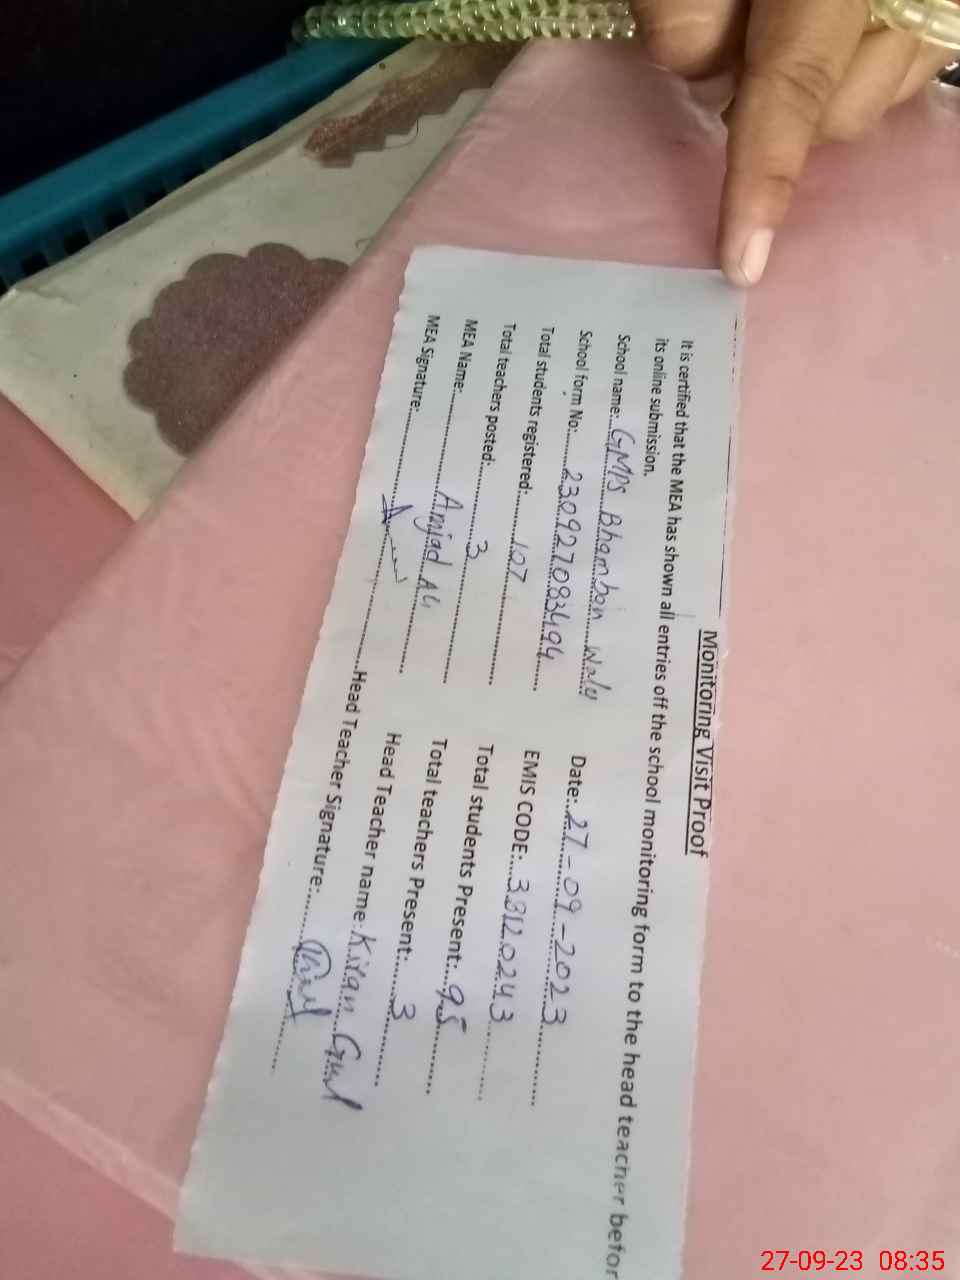 Monitoring Visit Proof
It is certified that the MEA has shown all entries off the school monitoring form to the head teacher befor
its online submission.
School name: GMPS Bhamboin Wala Date: 27-09-2023
School form No: 230927083494 EMIS CODE: 38120243
Total students registered: 107 Total students Present: 95
Total teachers posted: 3 Total teachers Present: 3
MEA Name: Amjad Ali Head Teacher name: Kiran Gul
MEA Signature: Head Teacher Signature:
27-09-23 08:35